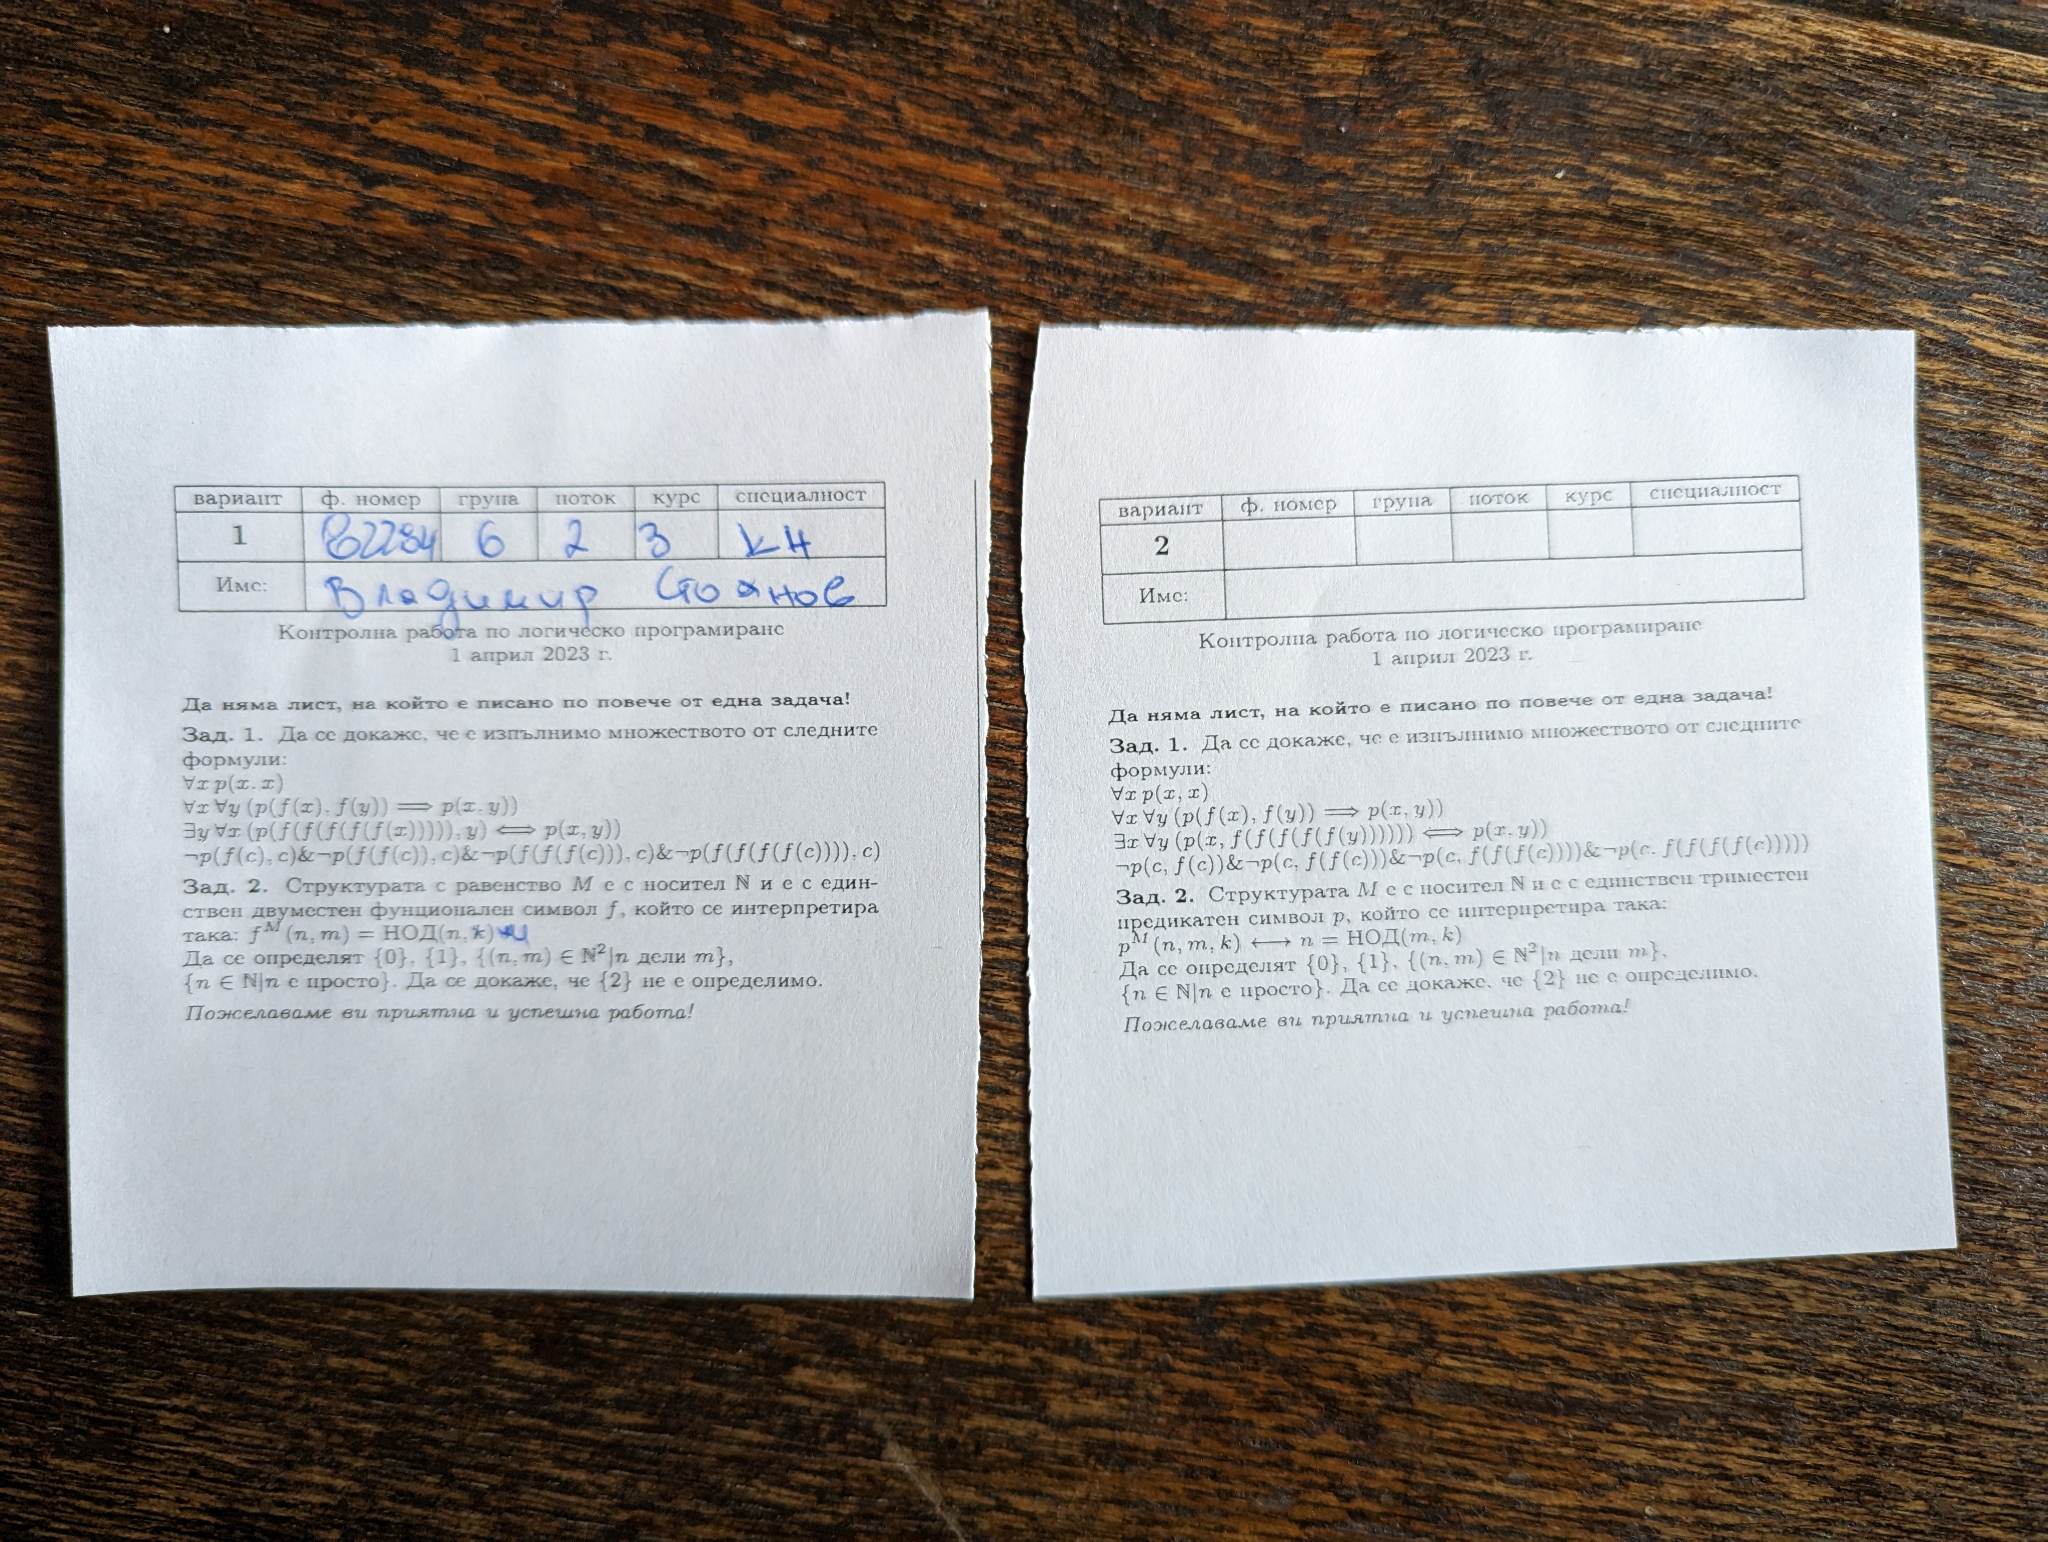 вариант ф. номер група поток курс специалност
1 82284 6 2 3 КН
Име: Владимир Стоянов
Контролна работа по логическо програмиране
1 април 2023 г.
Да няма лист, на който е писано по повече от една задача!
Зад. 1. Да се докаже, че е изпълнимо множеството от следните
формули:
∀x p(x, x)
∀x ∀y (p(f(x), f(y)) ⟹ p(x, y))
∃y ∀x (p(f(f(f(f(f(x))))), y) ⟺ p(x, y))
¬p(f(c), c)&¬p(f(f(c)), c)&¬p(f(f(f(c))), c)&¬p(f(f(f(f(c)))), c)
Зад. 2. Структурата с равенство M е с носител ℕ и е с един-
ствен двуместен фунционален символ f, който се интерпретира
така: fᴹ(n, m) = НОД(n, k)
Да се определят {0}, {1}, {(n, m) ∈ ℕ²|n дели m},
{n ∈ ℕ|n е просто}. Да се докаже, че {2} не е определимо.
Пожелаваме ви приятна и успешна работа!
вариант ф. номер група поток курс специалност
2
Име:
Контролна работа по логическо програмиране
1 април 2023 г.
Да няма лист, на който е писано по повече от една задача!
Зад. 1. Да се докаже, че е изпълнимо множеството от следните
формули:
∀x p(x, x)
∀x ∀y (p(f(x), f(y)) ⟹ p(x, y))
∃x ∀y (p(x, f(f(f(f(f(y)))))) ⟺ p(x, y))
¬p(c, f(c))&¬p(c, f(f(c)))&¬p(c, f(f(f(c))))&¬p(c, f(f(f(f(c)))))
Зад. 2. Структурата M е с носител ℕ и е с единствен триместен
предикатен символ p, който се интерпретира така:
pᴹ(n, m, k) ⟷ n = НОД(m, k)
Да се определят {0}, {1}, {(n, m) ∈ ℕ²|n дели m},
{n ∈ ℕ|n е просто}. Да се докаже, че {2} не е определимо.
Пожелаваме ви приятна и успешна работа!